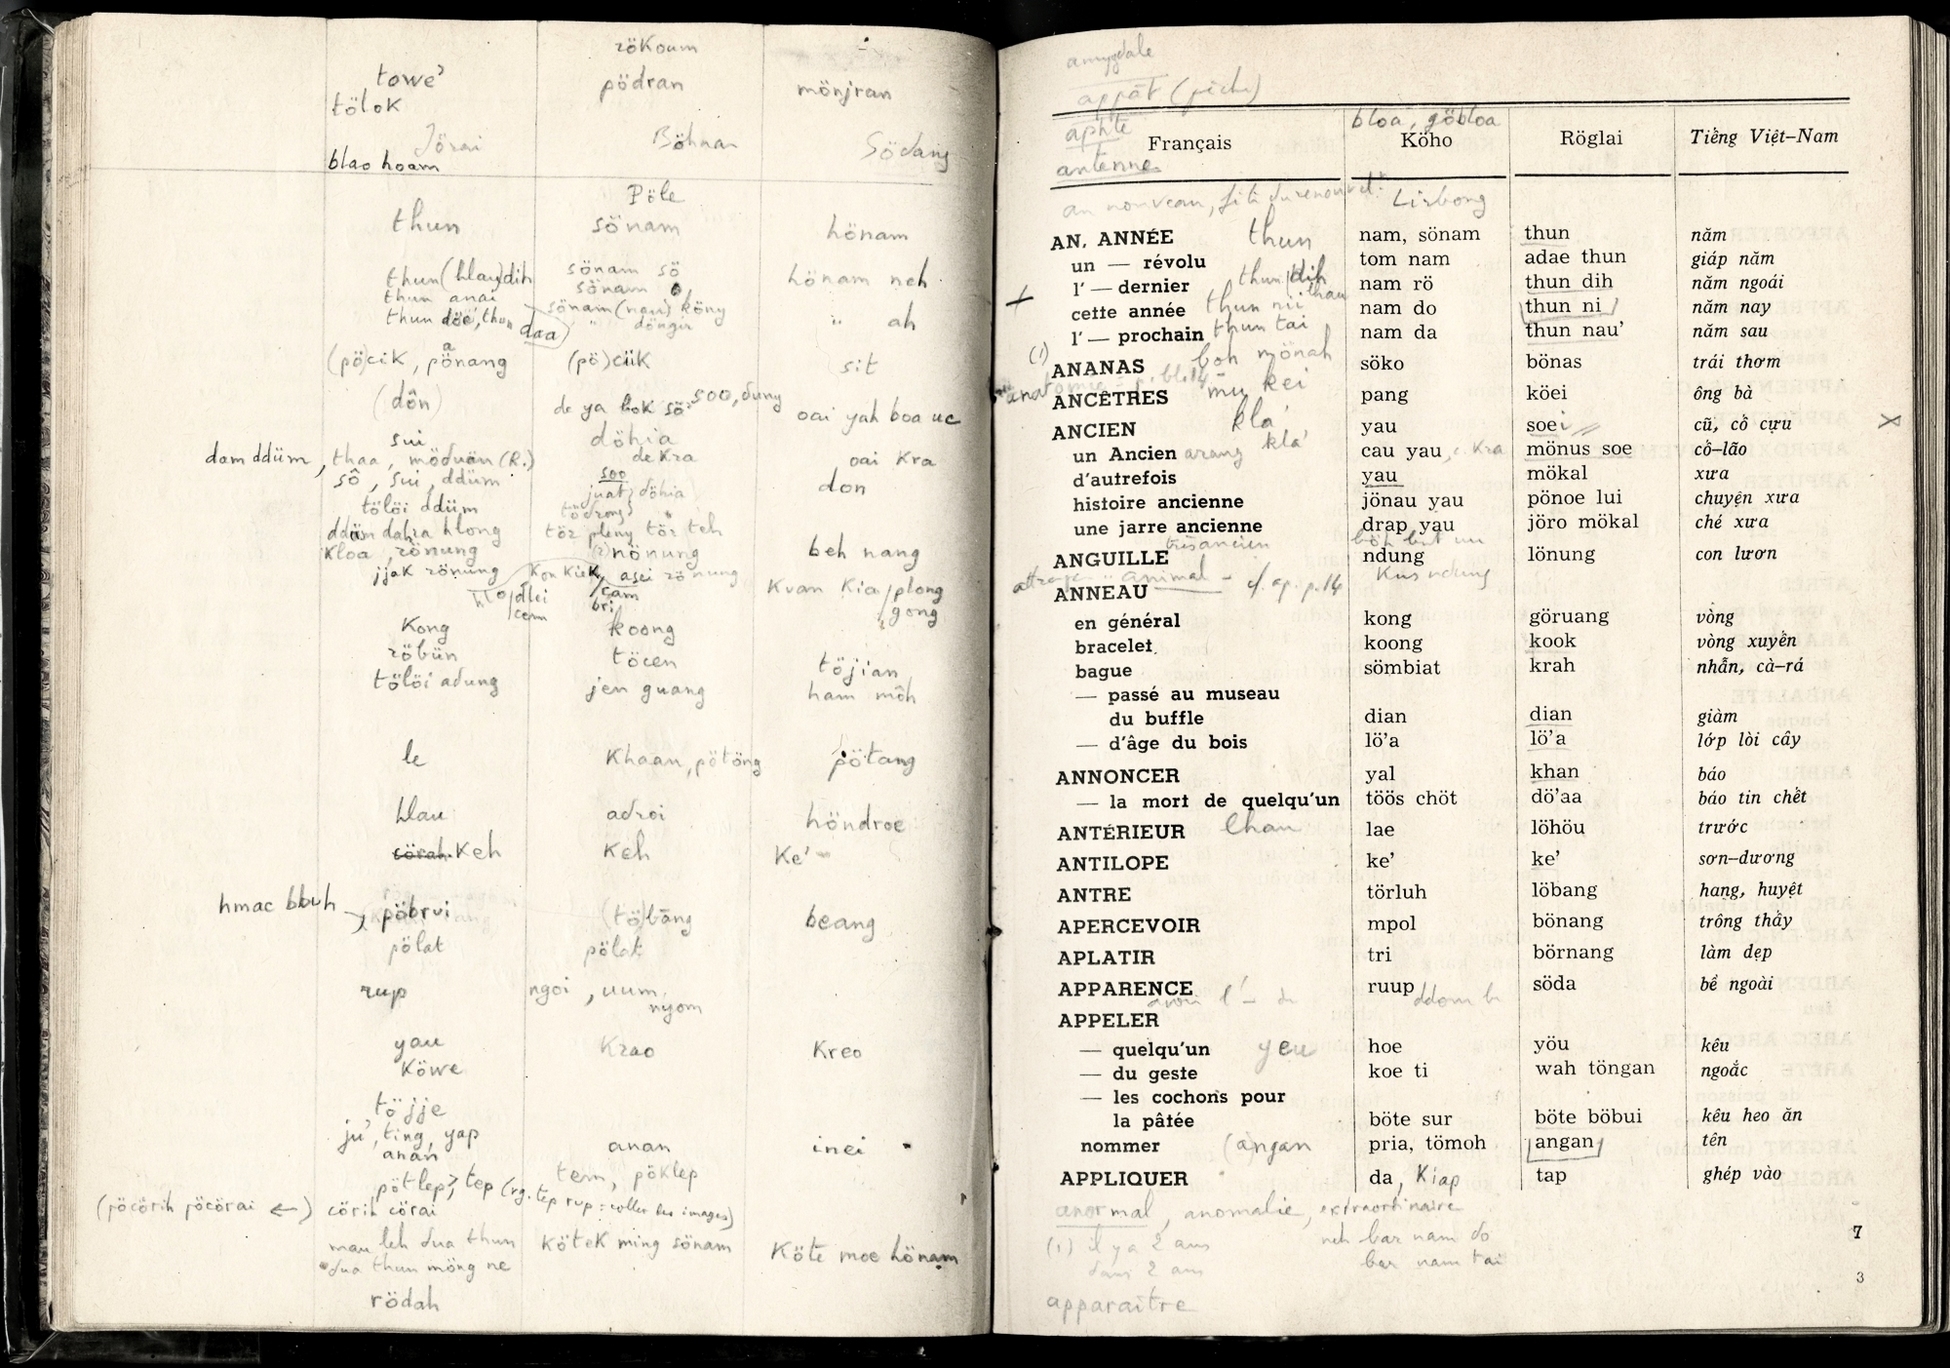 rökoum
towe' pödran mönjran
tölok
Jörai Böhnar Södang
blao hoam
Pöle
thun sönam hönam
thun (hlau) dih sönam sö hönam neh
thun anai sönam
thun döe', thun daa sönam (nau) köny " ah
döngir
(pö)cik, pönang (pö)cük sit
(dôn) de ya bok sö soo, dung oai yah boa uc
sui döhia
dam ddüm, thaa, möduän (R.) de kra oai kra
sô, sui, ddüm soo don
juat, döhia
tölöi ddüm tödrong
ddüm dahra hlong tör pleny tör teh
kloa, rönung (r)nönung beh nang
jjak rönung kon kiek, asei rönung kuan kia/plong
cam gong
bri
Kong koong
röbün töcen töjian
tölöi adung jen guang ham môh
le khaan, pötöng pötang
hlau adroi höndroe
keh keh ke'
hmac bbuh pöbrui (tö)bâng beang
pölat pölat
rup ngoi, uum, nyom
yau krao kreo
köwe
töjje
ju', ting, yap
anan anan inei
pötlep, tep (rg. tep rup : coller des images) tem, pöklep
(pöcörih pöcörai ←) cörih cörai
mau leh dua thun kötek ming sönam köte moe hönam
dua thun möng ne
rödah
amygdale
appât (piche)
aphte bloa, göbloa
Français Köho Röglai Tiếng Việt-Nam
antenne
an nouveau, fête du renouvel. Lirbong
AN, ANNÉE thun nam, sönam thun năm
un — révolu tom nam adae thun giáp năm
l' — dernier thun dih nam rö thun dih năm ngoái
cette année thun nii nam do thun ni năm nay
l' — prochain thun tai nam da thun nau' năm sau
(1) ANANAS boh mönah söko bönas trái thơm
anatomie - p. bl. 14
ANCÊTRES mu kei pang köei ông bà
ANCIEN kla' yau soei cũ, cổ cựu
un Ancien arang kla' cau yau, c. kra mönus soe cổ-lão
d'autrefois yau mökal xưa
histoire ancienne jönau yau pönoe lui chuyện xưa
une jarre ancienne drap yau jöro mökal ché xưa
très ancien
ANGUILLE ndung lönung con lươn
animal — cf. ap. p. 14 Kus ndung
ANNEAU
en général kong göruang vòng
bracelet koong kook vòng xuyền
bague sömbiat krah nhẫn, cà-rá
— passé au museau
du buffle dian dian giàm
— d'âge du bois lö'a lö'a lớp lòi cây
ANNONCER yal khan báo
— la mort de quelqu'un töös chöt dö'aa báo tin chết
ANTÉRIEUR lhau lae löhöu trước
ANTILOPE ke' ke' sơn-dương
ANTRE törluh löbang hang, huyệt
APERCEVOIR mpol bönang trông thấy
APLATIR tri börnang làm dẹp
APPARENCE ruup söda bề ngoài
avoir l' — de ddom b
APPELER
— quelqu'un yeu hoe yöu kêu
— du geste koe ti wah töngan ngoắc
— les cochons pour
la pâtée böte sur böte böbui kêu heo ăn
nommer (angan pria, tömoh angan tên
APPLIQUER da, kiap tap ghép vào
anormal, anomalie, extraordinaire
(1) il y a 2 ans neh bar nam do
dans 2 ans bar nam tai
apparaître
7
3